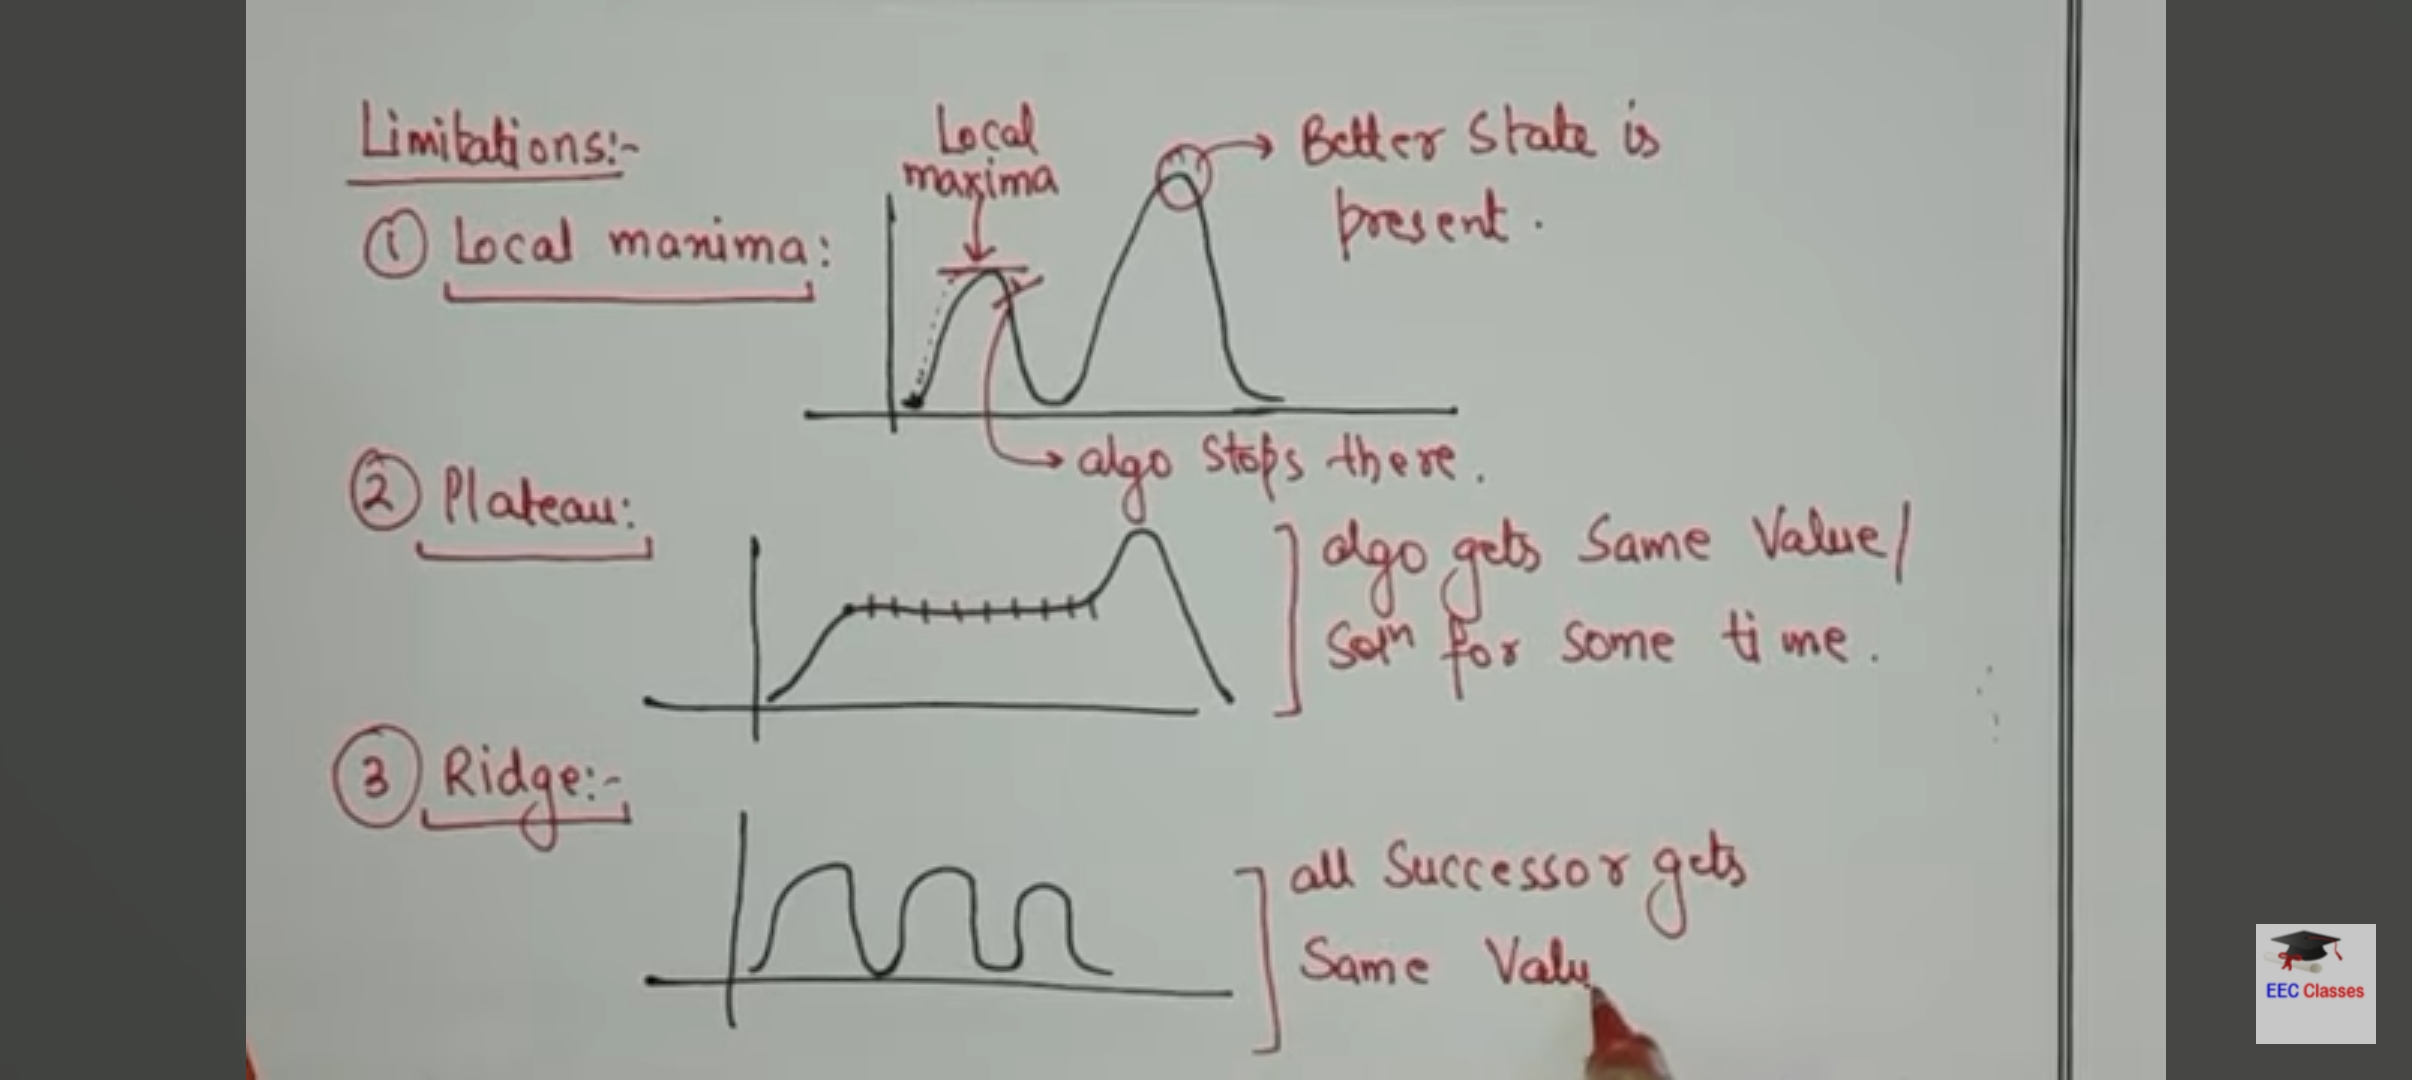 Limitations:-
Local
maxima
Better State is
present.
① Local maxima:
algo stops there.
② Plateau:
algo gets Same Value/
Soln for some time.
③ Ridge:-
all Successor gets
Same Valu
EEC Classes